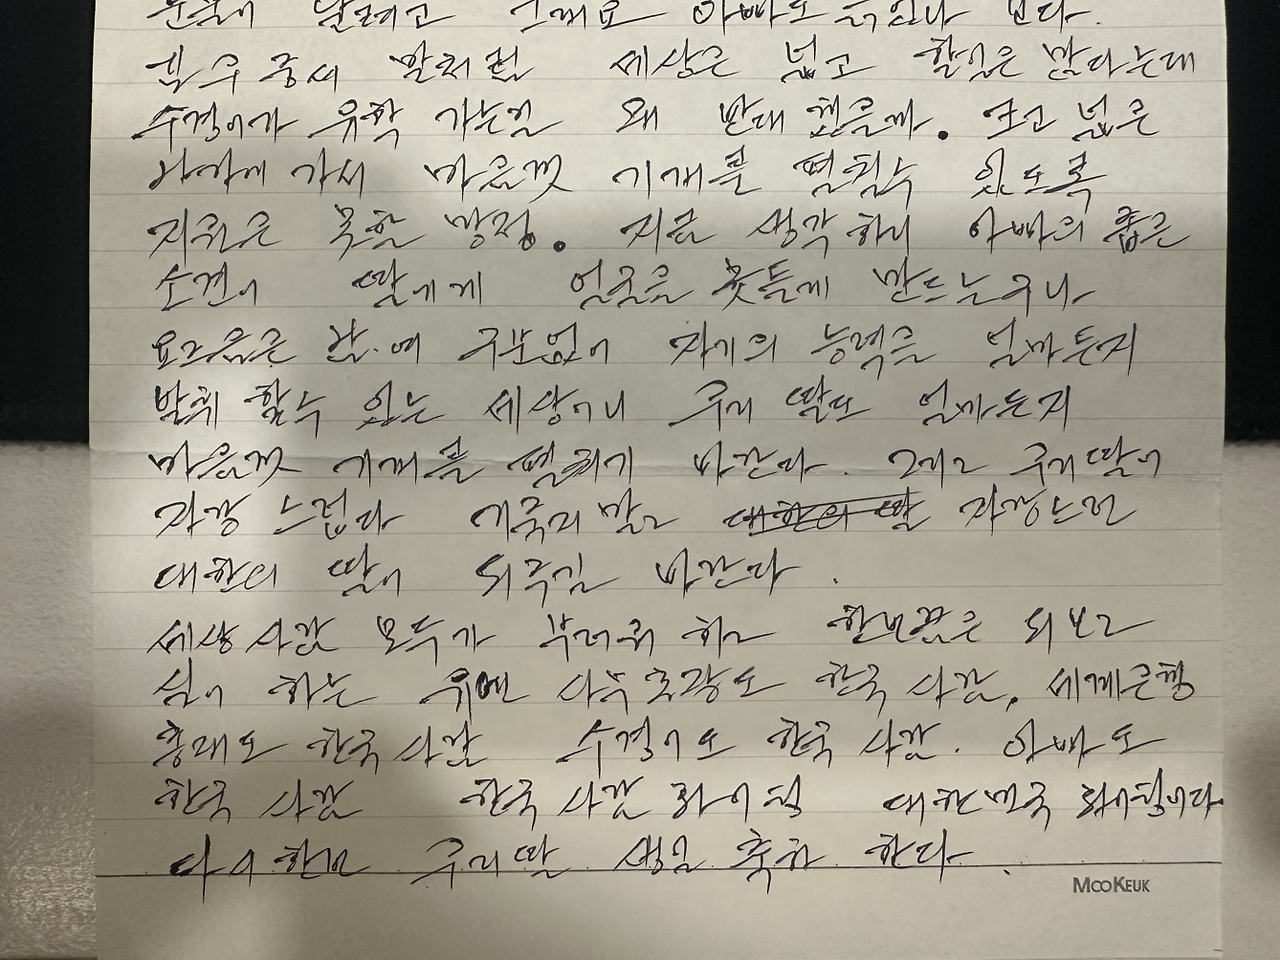 눈물이 날려고 그래요 아빠도 늙었나 보다.
김우중씨 말처럼 세상은 넓고 할일은 많다는데
수경이가 유학 가는걸 왜 반대 했을까. 보고 넓은
나라에 가서 마음껏 기개를 펼칠수 있도록
지원은 못할 망정. 지금 생각하니 아빠의 좁은
소견이 딸에게 얼굴을 못들게 만드는구나
요즈음은 남.여 구분없이 자기의 능력을 얼마든지
발휘 할수 있는 세상이니 우리 딸도 얼마든지
마음껏 기개를 펼치기 바란다. 그리고 우리딸이
자랑 스럽다 기죽지 말고 대한의 딸 자랑스런
대한의 딸이 되주길 바란다.
세상사람 모두가 부러워 하고 한번쯤은 되보고
싶어 하는 유엔 사무총장도 한국사람, 세계은행
총재도 한국사람 수경이도 한국 사람. 아빠도
한국 사람 한국 사람 화이팅 대한민국 화이팅이다
다시한번 우리딸 생일 축하 한다.
MOOKEUK